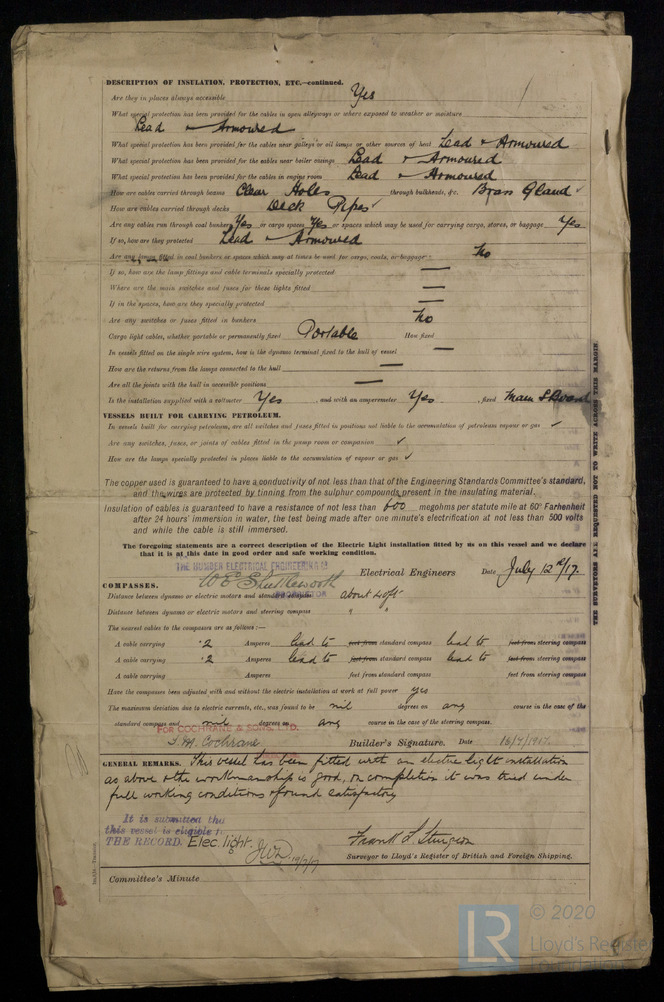 DESCRIPTION OF INSULATION, PROTECTION, ETC.—continued.
Are they in places always accessible Yes
What special protection has been provided for the cables in open alleyways or where exposed to weather or moisture
Lead & Armoured
What special protection has been provided for the cables near galleys or oil lamps or other sources of heat Lead & Armoured
What special protection has been provided for the cables near boiler casings Lead & Armoured
What special protection has been provided for the cables in engine room Lead & Armoured
How are cables carried through beams Clear Holes through bulkheads, &c. Brass Gland ✓
How are cables carried through decks Deck Pipes ✓
Are any cables run through coal bunkers Yes or cargo spaces Yes or spaces which may be used for carrying cargo, stores, or baggage Yes
If so, how are they protected Lead & Armoured
Are any lamps fitted in coal bunkers or spaces which may at times be used for cargo, coals, or baggage No
If so, how are the lamp fittings and cable terminals specially protected —
Where are the main switches and fuses for these lights fitted —
If in the spaces, how are they specially protected —
Are any switches or fuses fitted in bunkers No
Cargo light cables, whether portable or permanently fixed Portable How fixed
In vessels fitted on the single wire system, how is the dynamo terminal fixed to the hull of vessel —
How are the returns from the lamps connected to the hull —
Are all the joints with the hull in accessible positions —
Is the installation supplied with a voltmeter Yes , and with an amperemeter Yes , fixed Main S Board
VESSELS BUILT FOR CARRYING PETROLEUM.
In vessels built for carrying petroleum, are all switches and fuses fitted in positions not liable to the accumulation of petroleum vapour or gas ✓
Are any switches, fuses, or joints of cables fitted in the pump room or companion ✓
How are the lamps specially protected in places liable to the accumulation of vapour or gas ✓
The copper used is guaranteed to have a conductivity of not less than that of the Engineering Standards Committee's standard,
and the wires are protected by tinning from the sulphur compounds present in the insulating material.
Insulation of cables is guaranteed to have a resistance of not less than 600 megohms per statute mile at 60° Farhenheit
after 24 hours' immersion in water, the test being made after one minute's electrification at not less than 500 volts
and while the cable is still immersed.
The foregoing statements are a correct description of the Electric Light installation fitted by us on this vessel and we declare
that it is at this date in good order and safe working condition.
THE HUMBER ELECTRICAL ENGINEERING Co
W E Shuttleworth Electrical Engineers Date July 12th/17.
PROPRIETOR
COMPASSES.
Distance between dynamo or electric motors and standard compass about 40ft
Distance between dynamo or electric motors and steering compass " "
The nearest cables to the compasses are as follows:—
A cable carrying .2 Amperes lead to feet from standard compass lead to feet from steering compass
A cable carrying .2 Amperes lead to feet from standard compass lead to feet from steering compass
A cable carrying Amperes feet from standard compass feet from steering compass
Have the compasses been adjusted with and without the electric installation at work at full power yes
The maximum deviation due to electric currents, etc., was found to be nil degrees on any course in the case of the
standard compass and nil degrees on any course in the case of the steering compass.
FOR COCHRANE & SONS, LTD.
Cochrane Builder's Signature. Date 16/7/1917.
GENERAL REMARKS. This vessel has been fitted with an electric light installation
as above & the workmanship is good, on completion it was tried under
full working conditions & found satisfactory
It is submitted tha
this vessel is eligible f
THE RECORD. Elec. light. JWD 19/7/17
Frank L Sturgeon
Surveyor to Lloyd's Register of British and Foreign Shipping.
Committee's Minute
THE SURVEYORS ARE REQUESTED NOT TO WRITE ACROSS THIS MARGIN
LR
© 2020
Lloyd's Register
Foundation